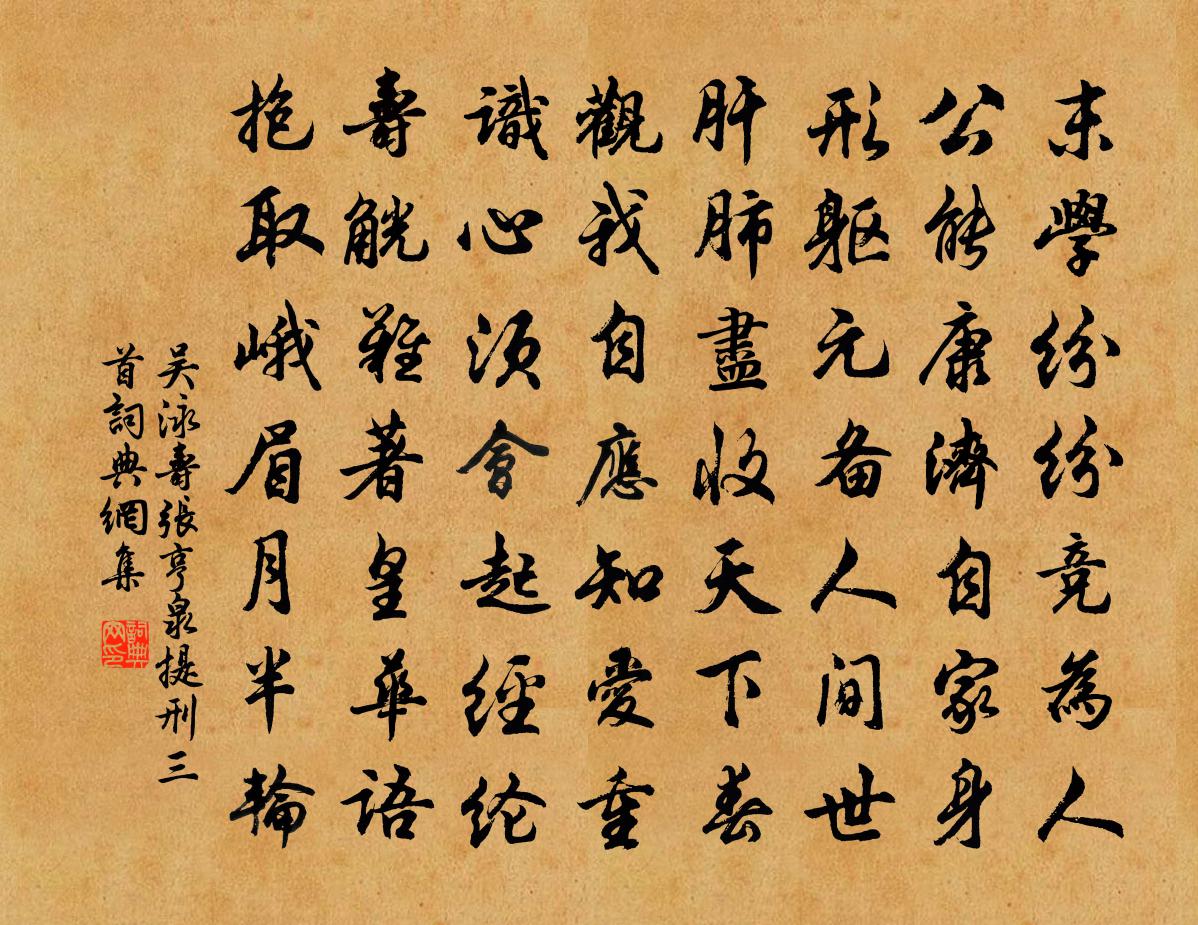 末學紛紛競為人
公能康濟自家身
形軀元备人间世
肝肺盡收天下春
觀我自應知愛重
識心須會起經纶
壽觥難著皇華語
抱取峨眉月半輪
吴泳壽張亨泉提刑三
首詞典網集
詞典
网印